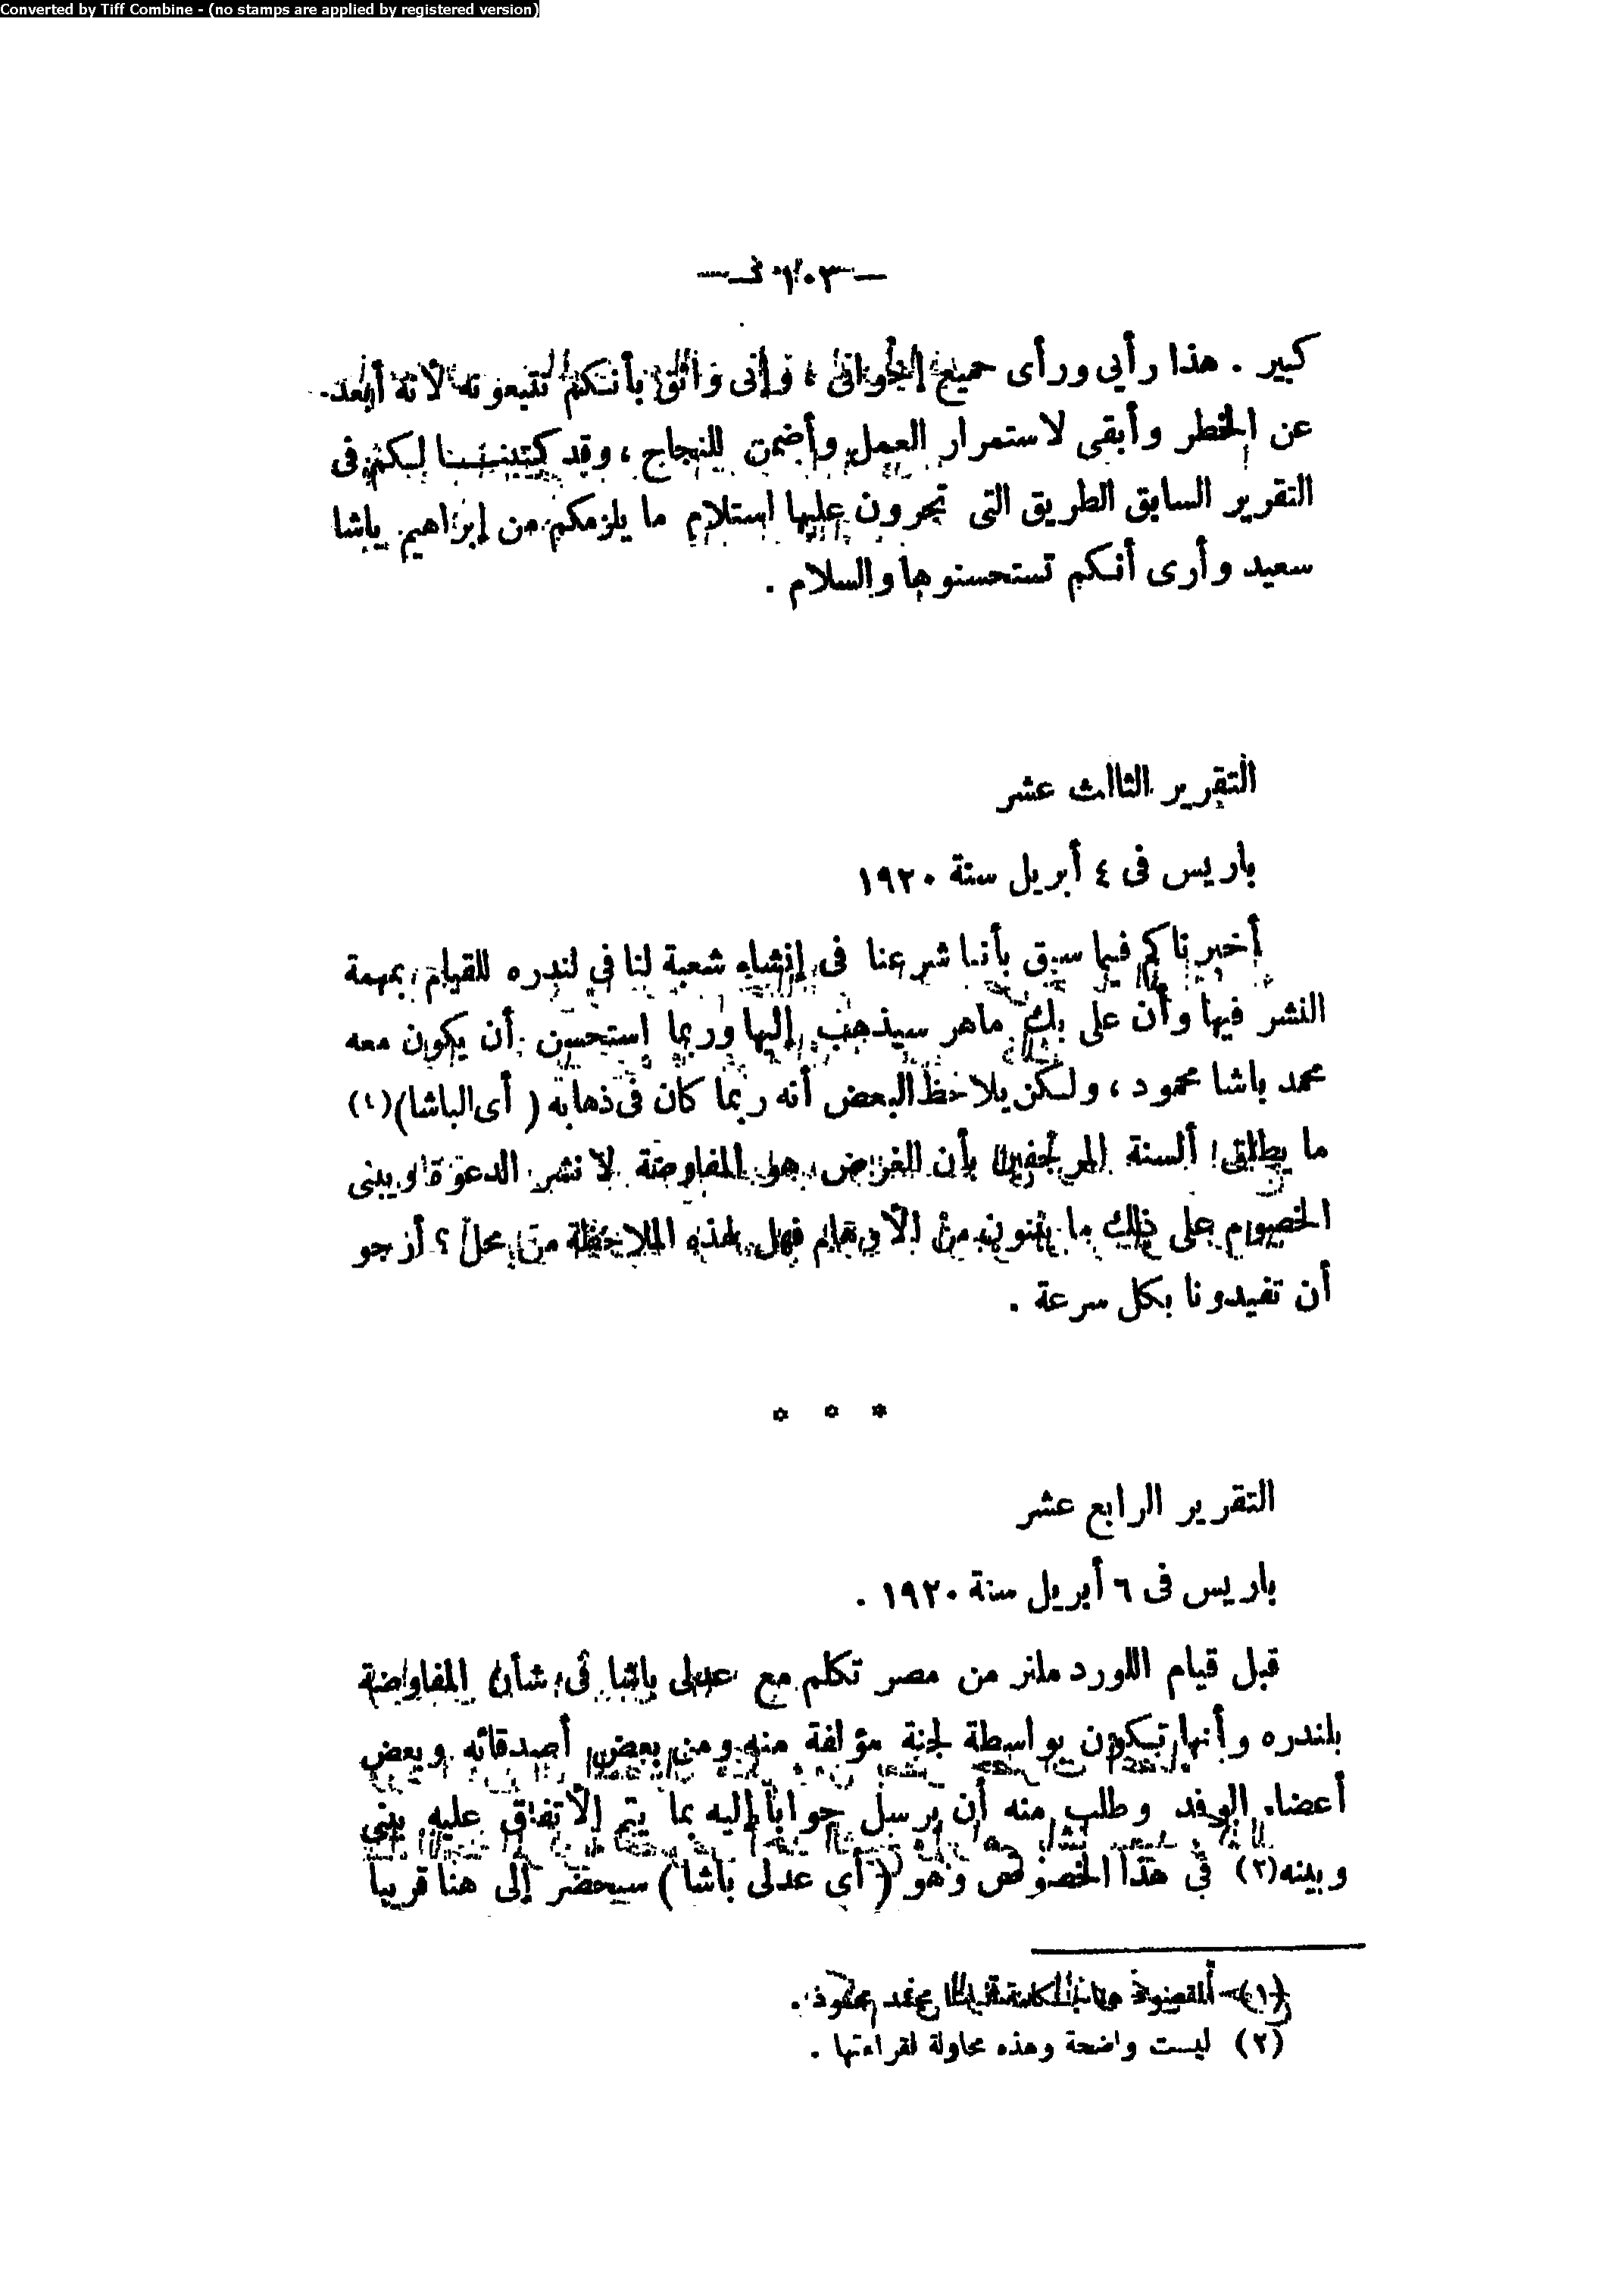 Converted by Tiff Combine - (no stamps are applied by registered version)
كبير . هذا رأيي ورأى جميع إخوانى ، وإنى واثق بأنكم تتبعونه لأنه أبعد
عن الخطر وأبقى لاستمرار العمل وأضمن للنجاح ، وقد كتبنا لكم فى
التقرير السابق الطريق التى تجرون عليها استلام ما يلزمكم من إبراهيم باشا
سعيد وأرى أنكم تستحسنوها والسلام .
التقرير الثالث عشر
باريس فى ٤ أبريل سنة ١٩٢٠
أخبرناكم فيما سبق بأننا شرعنا فى إنشاء شعبة لنا فى لندره للقيام بمهمة
النشر فيها وأن على بك ماهر سيذهب إليها وربما استحسن أن يكون معه
محمد باشا محمود ، ولكن يلاحظ البعض أنه ربما كان فى ذهابه ( أى الباشا)(١)
ما يطلق ألسنة المرجفين بأن الغرض هو المفاوضة لا نشر الدعوة ويبنى
الخصوم على ذلك ما يبنون من الأوهام فهل لهذه الملاحظة من محل ؟ أرجو
أن تفيدونا بكل سرعة .
* * *
التقرير الرابع عشر
باريس فى ٦ أبريل سنة ١٩٢٠ .
قبل قيام اللورد ملنر من مصر تكلم مع عدلى باشا فى شأن المفاوضة
بلندره وأنها تكون بواسطة لجنة مؤلفة منه ومن بعض أصدقائه وبعض
أعضاء الوفد وطلب منه أن يرسل جواباً إليه بما يتم الاتفاق عليه بينى
وبينه(٢) فى هذا الخصوص وهو ( أى عدلى باشا ) سيحضر إلى هنا قريبا
(١) المقصود محمد محمود .
(٢) ليست واضحة وهذه محاولة لقراءتها .